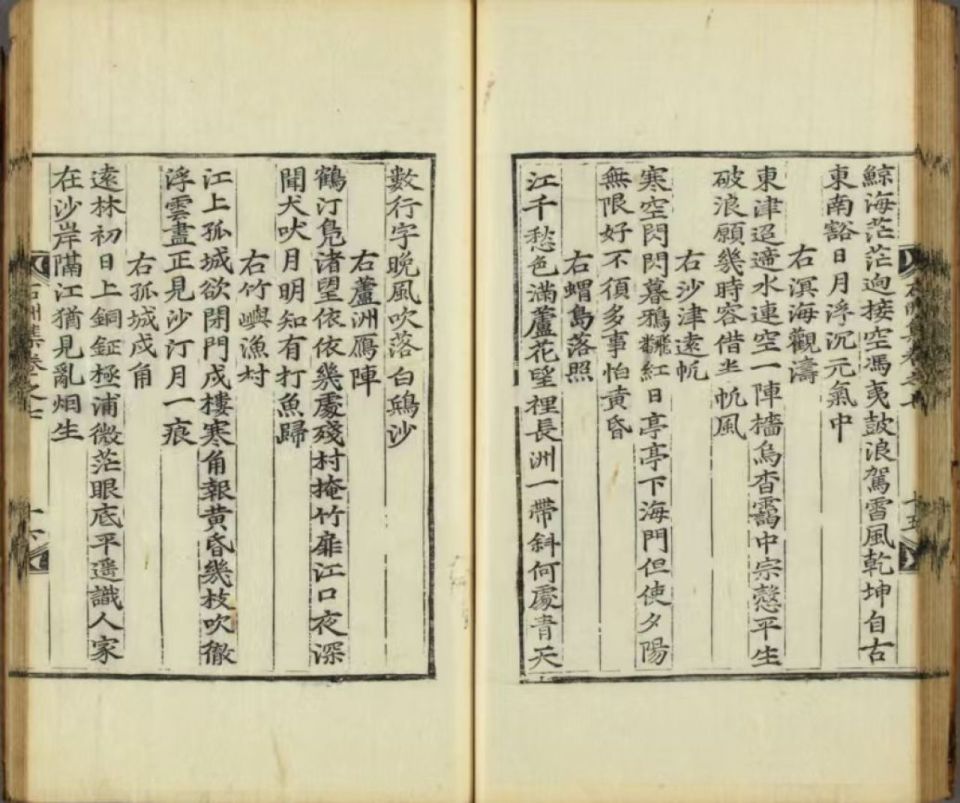 鯨海茫茫逈接空馮夷鼓浪駕雷風乾坤自古
東南豁日月浮沉元氣中
右溟海觀濤
東津迢遞水連空一陣檣烏杳靄中宗慤平生
破浪願幾時容借半帆風
右沙津遠帆
寒空閃閃暮鴉飜紅日亭亭下海門但使夕陽
無限好不須多事怕黄昏
右蝟島落照
江干愁色滿蘆花望裡長洲一帶斜何處青天
數行字晩風吹落白鷗沙
右蘆洲鴈陣
鶴汀鳧渚望依依幾處殘村掩竹扉江口夜深
聞犬吠月明知有打魚歸
右竹嶼漁村
江上孤城欲閉門戍樓寒角報黄昏幾枝吹徹
浮雲盡正見沙汀月一痕
右孤城戍角
遠林初日上銅鉦極浦微茫眼底平遥識人家
在沙岸隔江猶見亂烟生
石洲集卷之七